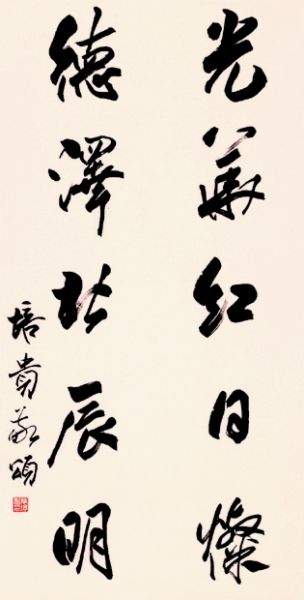 光華紅日燦
德澤北辰明
培贵敬頌